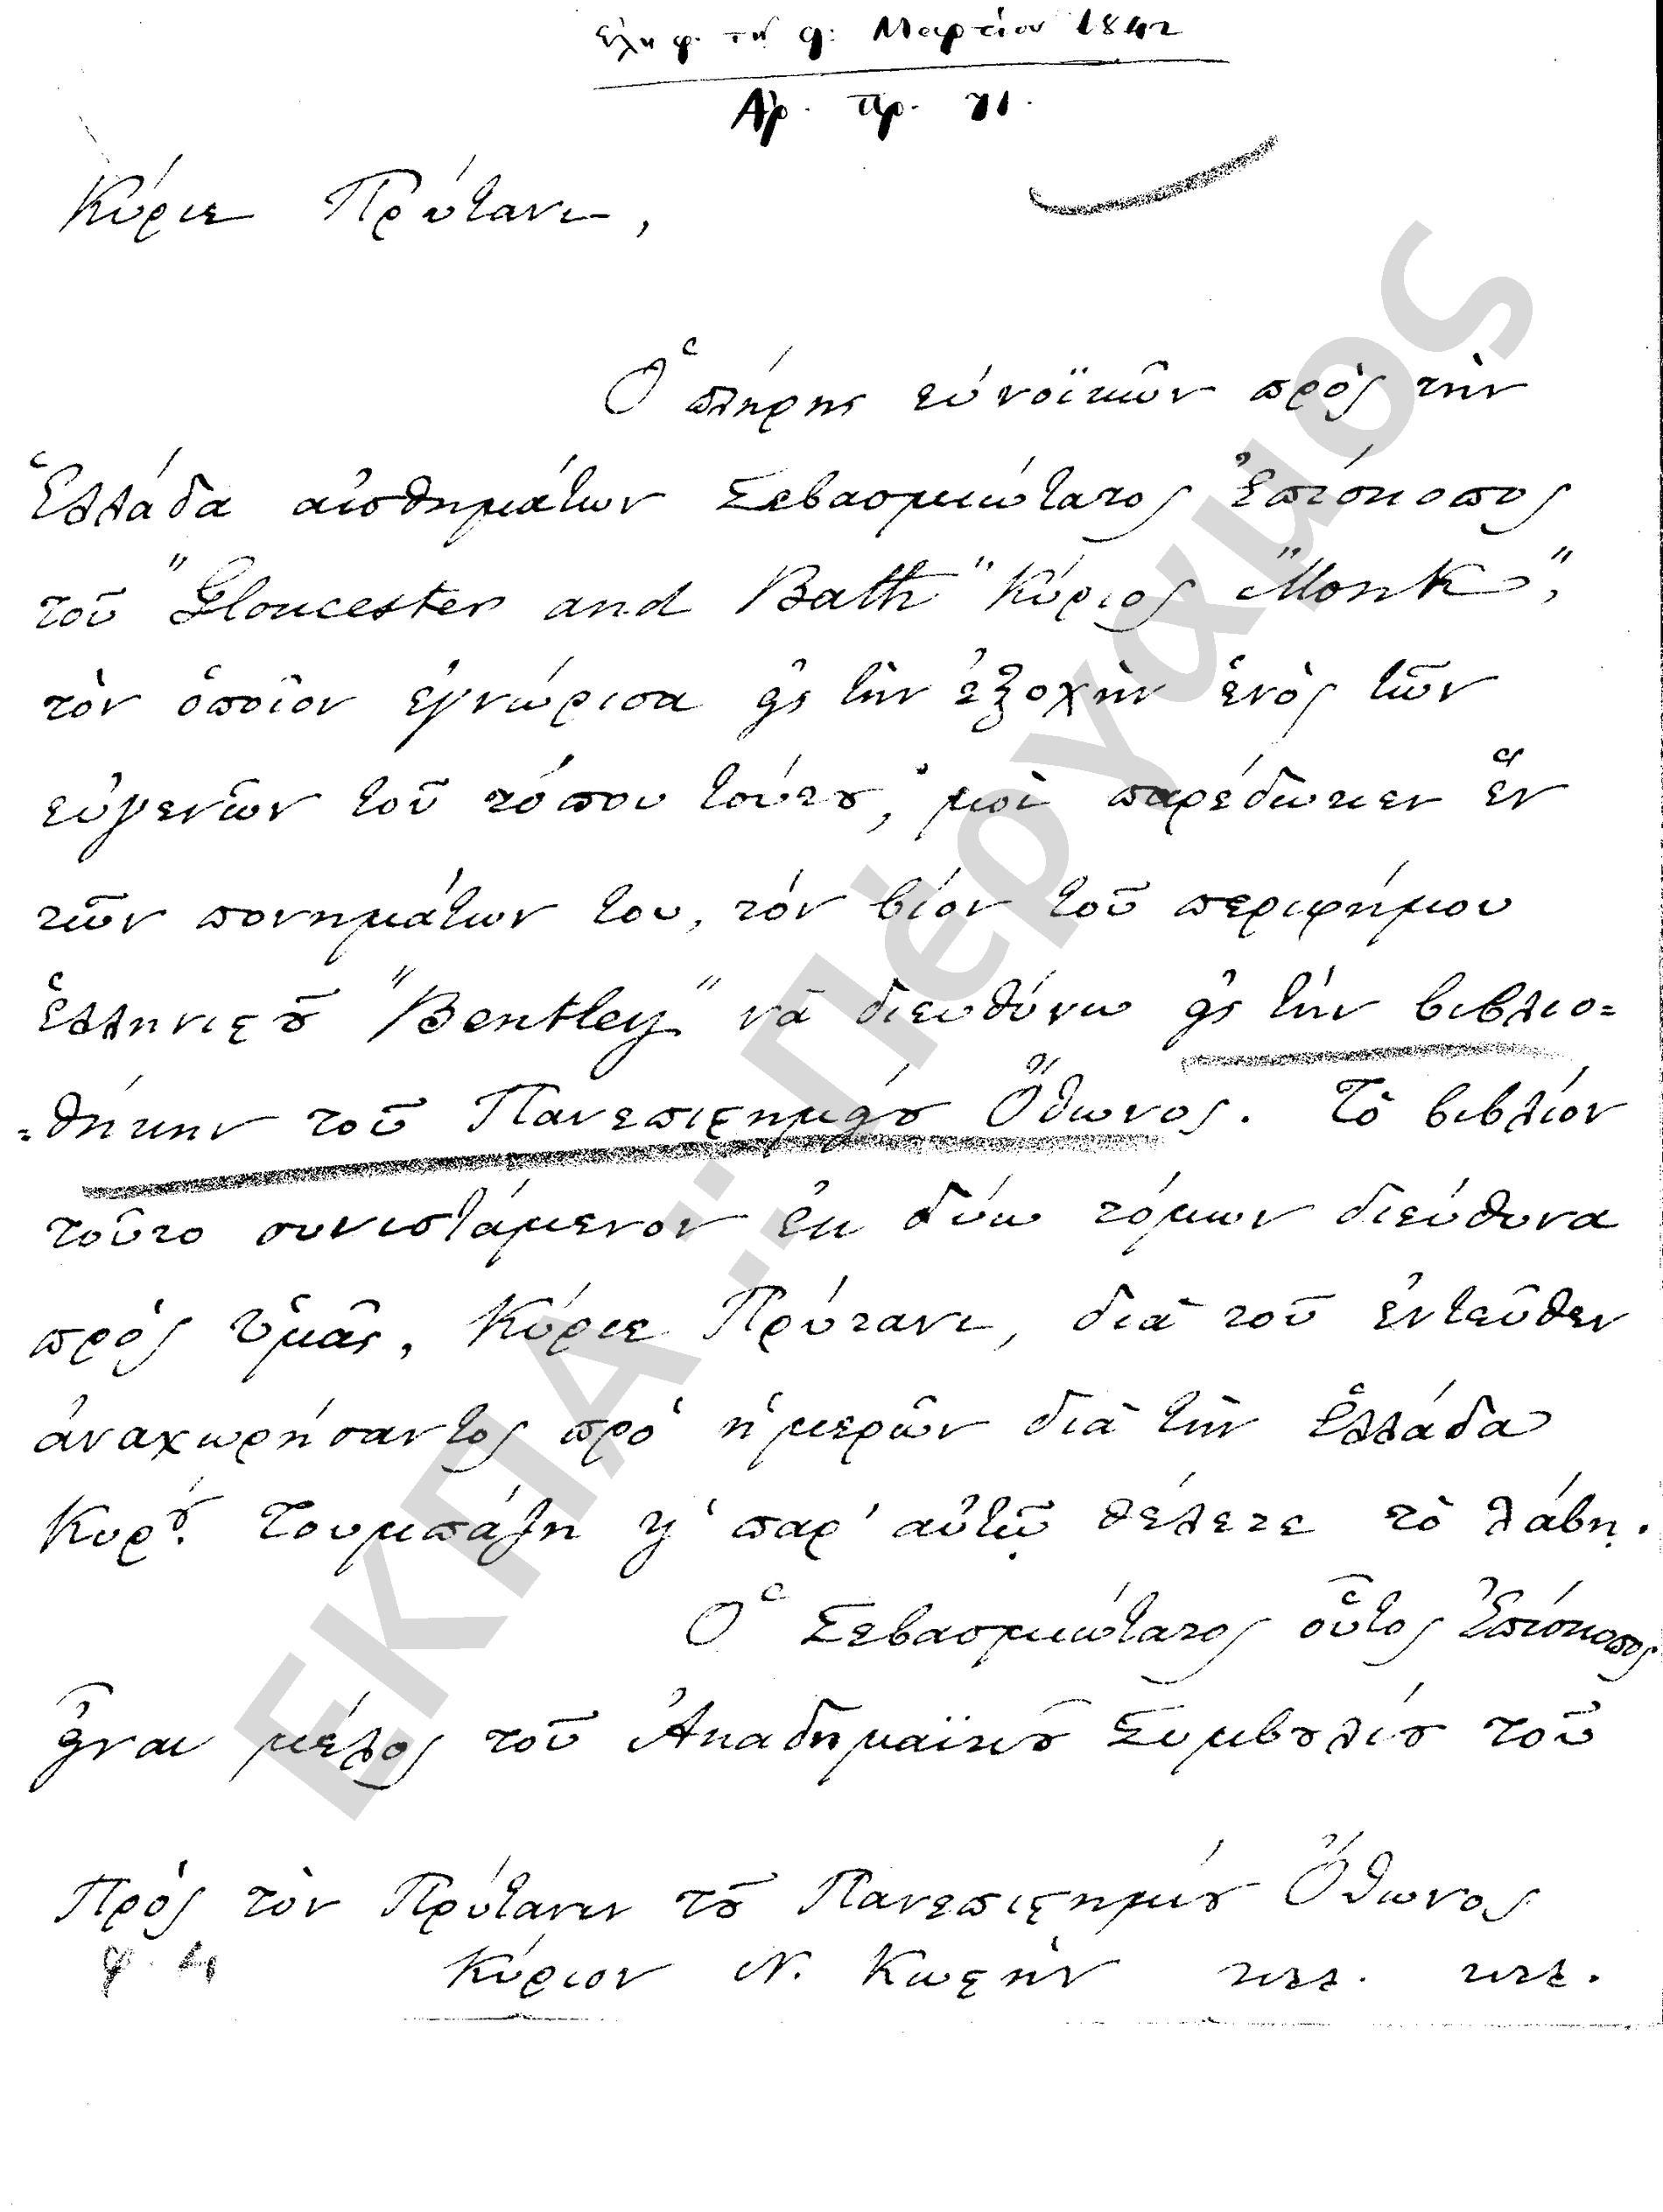 ἐλήφ. τῇ 9: Μαρτίου 1842
Ἀρ. πρ. 71.
Κύριε Πρύτανι,
Ὁ πλήρης εὐνοϊκῶν πρὸς τὴν
Ἑλλάδα αἰσθημάτων Σεβασμιώτατος Ἐπίσκοπος
τοῦ "Gloucester and Bath" Κύριος "Monk",
τὸν ὁποῖον ἐγνώρισα εἰς τὴν ἐξοχὴν ἑνὸς τῶν
εὐγενῶν τοῦ τόπου τούτου, μοὶ παρέδωκεν ἓν
τῶν πονημάτων του, τὸν βίον τοῦ περιφήμου
ἑλληνιστοῦ "Bentley" νὰ διευθύνω εἰς τὴν βιβλιο=
=θήκην τοῦ Πανεπιστημείου Ὄθωνος. Τὸ βιβλίον
τοῦτο συνιστάμενον ἐκ δύω τόμων διεύθυνα
πρὸς ὑμᾶς, Κύριε Πρύτανι, διὰ τοῦ ἐντεῦθεν
ἀναχωρήσαντος πρὸ ἡμερῶν διὰ τὴν Ἑλλάδα
Κυρου. Τουμπάζη κ' παρ' αὐτῷ θέλετε τὸ λάβῃ.
Ὁ Σεβασμιώτατος οὗτος Ἐπίσκοπος
εἶναι μέλος τοῦ Ἀκαδημαϊκοῦ Συμβουλίου τοῦ
Πρὸς τὸν Πρύτανιν τοῦ Πανεπιστημίου Ὄθωνος
φ. 4 Κύριον Ν. Κωστῆν κτλ. κτλ.
ΕΚΠΑ:: Πέργαμος